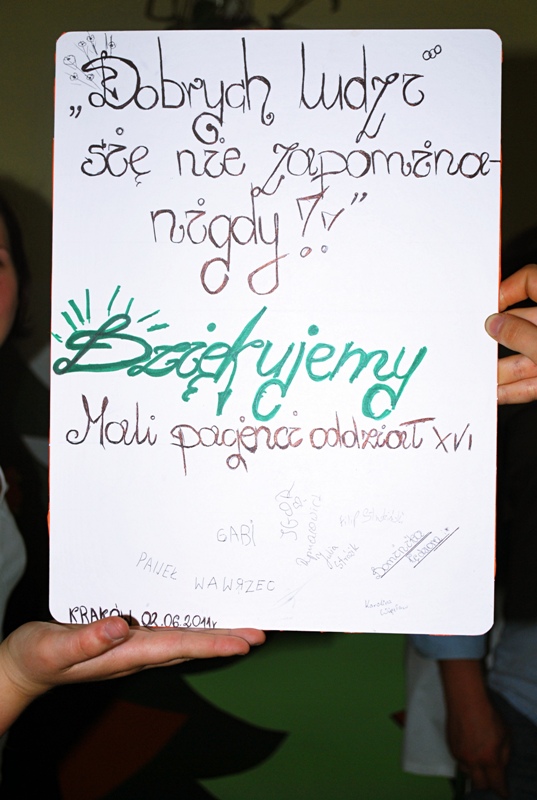 „Dobrych ludzi
się nie zapomina
nigdy!!”
Dziękujemy
Mali pacjenci oddział XVI
GABI
IGOR
PAWEŁ
WAWRZEC
KRAKÓW 02.06.2011r